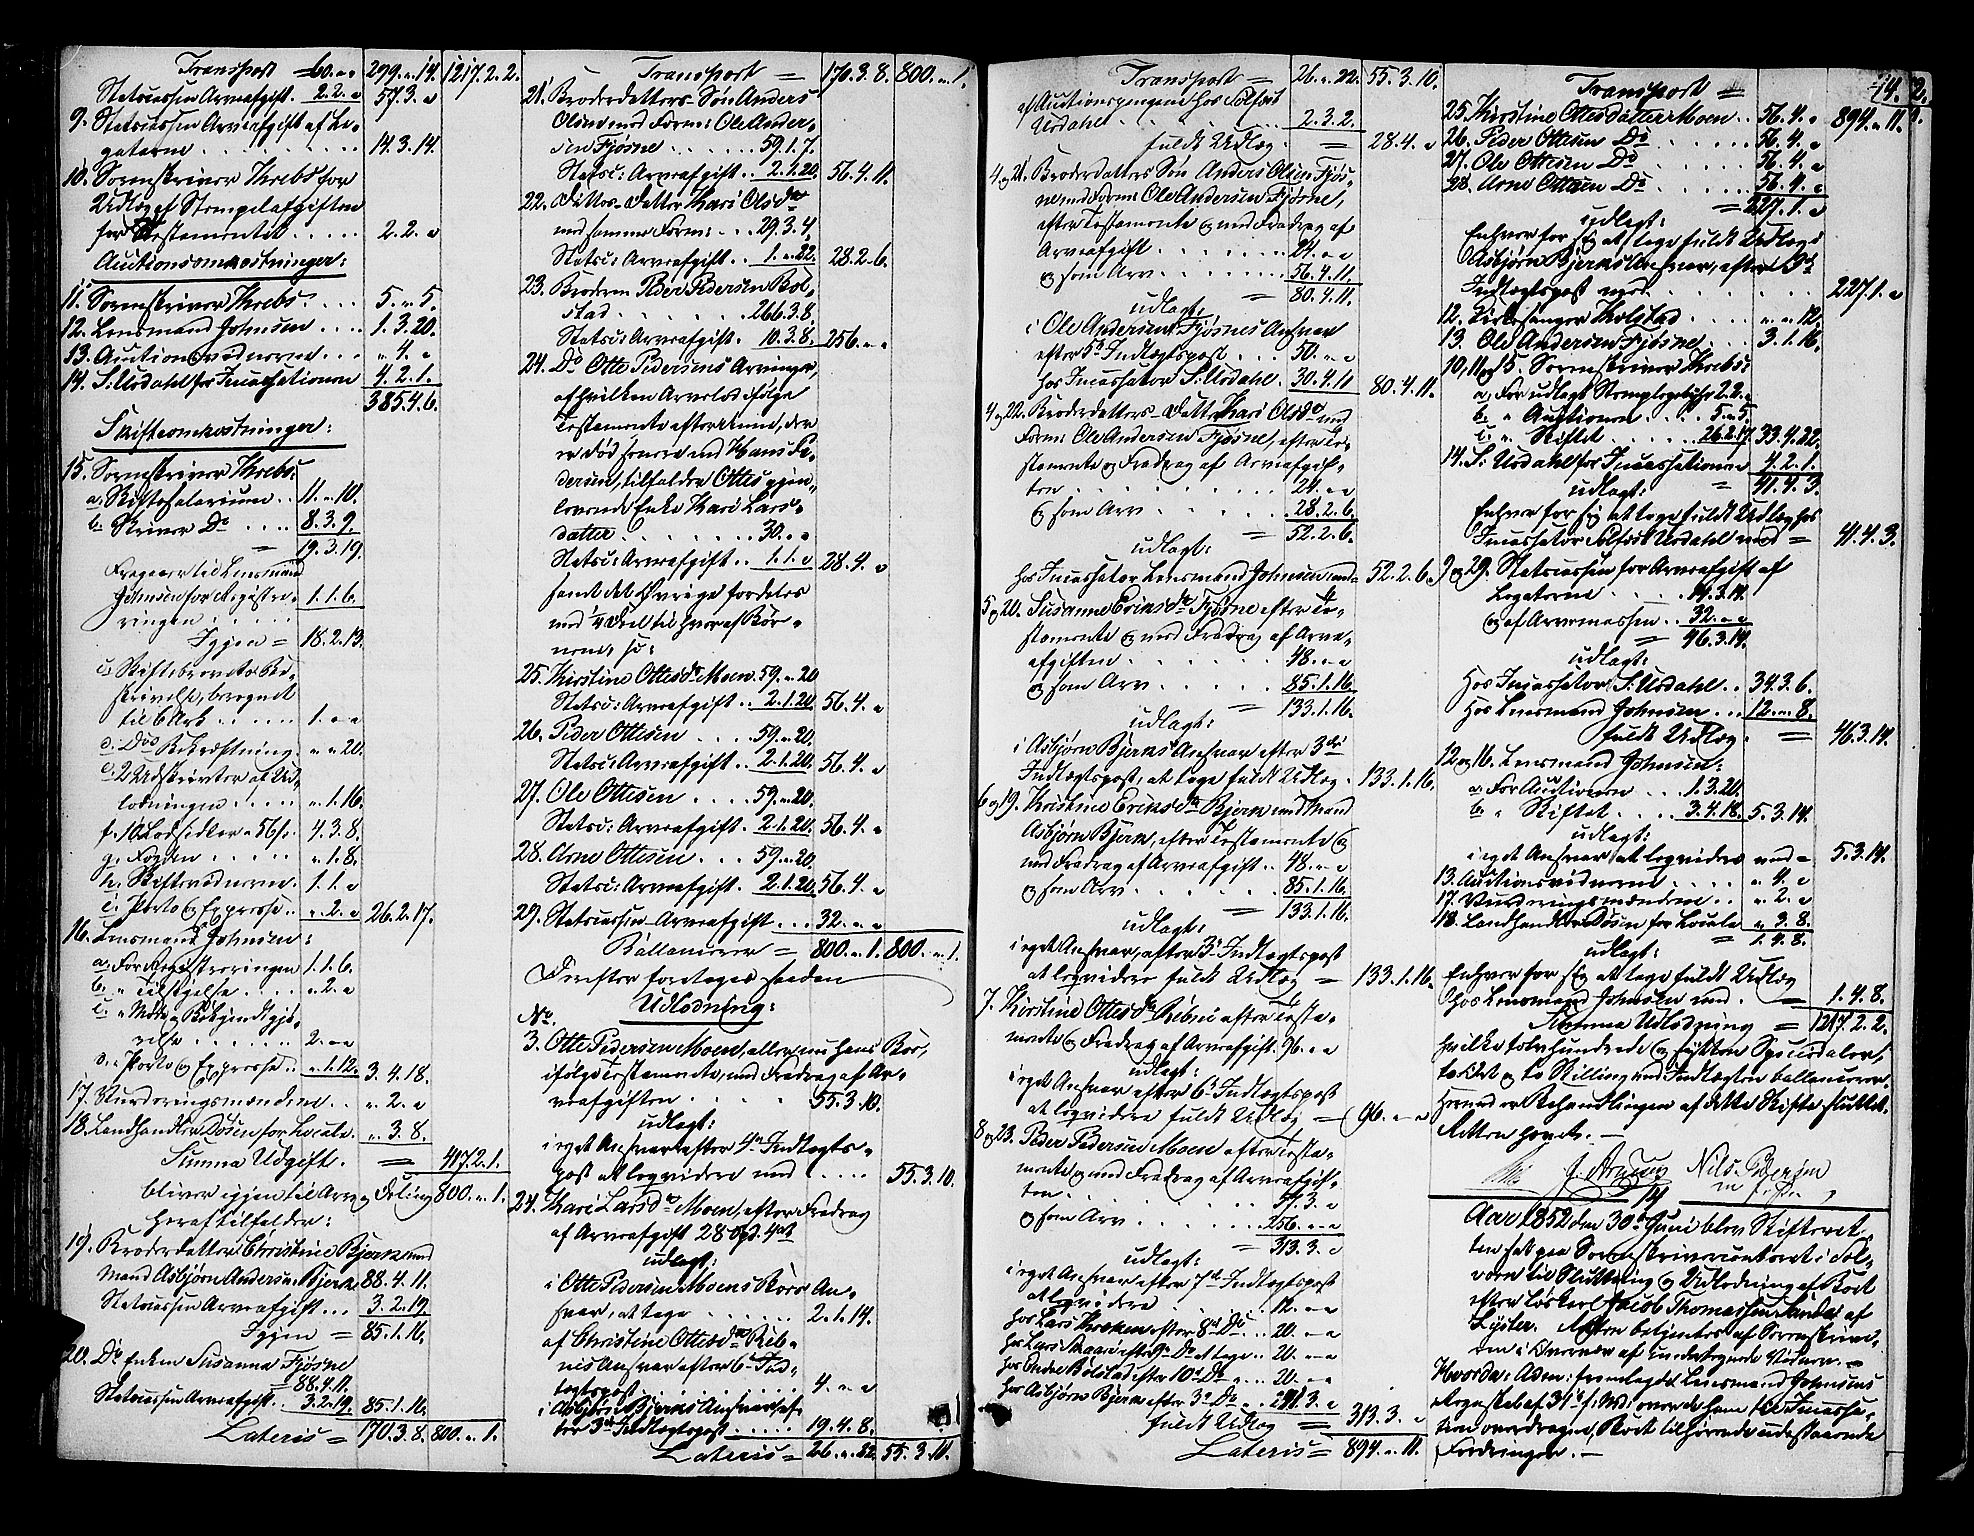 Transport = 60. " " 299. " 14. 1217. 2. 2.
Statscassen Arveafgift. 2. 2. " 57. 3. "
9. Statscassen Arveafgift af Le-
gaterne . . . . . . 14. 3. 14.
10. Sorenskriver Krebs for
Udlæg af Stempelafgiften
for Testamentet . . . . . 2. 2. "
Auctionsomkostninger:
11. Sorenskriver Krebs. . . . 5. " 5.
12. Lensmand Johnsen . . . . 1. 3. 20.
13. Auctionsvidnerne . . . " 4. "
14. S. Urdahl for Incassationen 4. 2. 1.
385. 4. 6.
Skifteomkostninger:
15. Sorenskriver Krebs:
a. Skiftesalarium . . 11. " 10.
b. Skriver Do . . . . 8. 3. 9.
= 19. 3. 19.
Fragaaer til Lensmand
Johnsen for Registre-
ringen . . . . . 1. 1. 6.
Igjen = 18. 2. 13.
c. Skiftebrevets Be-
skrivelse, beregnet
til 6 Ark . . . . . 1. " "
d. Dets Bekræftning. " " 20.
e. 2 Udskrivter af Ud-
lodningen . . . . . " 1. 16.
f. 10 Lodsedler a 56 s. 4. 3. 8.
g. Fogden . . . . . " 1. 8.
h. Skiftevidnerne. 1. 1. "
i. Porto og Expresse . . " 2. " 26. 2. 17.
16. Lensmand Johnsen:
a. For Registreringen 1. 1. 6.
b. " Tilsigelse . . . . " 2. "
c. " Møde og Bekjendtgjø-
relse . . . . . . 2. " "
d. Porto og Expresse . . " 1. 12. 3. 4. 18.
17. Vurderingsmændene . . " 2. "
18. Landhandler Døsen for Locale. " 3. 8.
Summa Udgift. = 417. 2. 1.
bliver igjen til Arv og Deling 800. " 1.
heraf tilfalder:
19. Broderdatter Christine Bjerk med
Mand Asbjørn Andersen Bjerk 88. 4. 11.
Statscassen Arveafgift . . . 3. 2. 19.
Igjen = 85. 1. 16.
20. Do Enken Susanna Fjøsne
= 88. 4. 11.
Statscassen Arveafgift. 3. 2. 19. 85. 1. 16.
Lateris = 170. 3. 8. 800. " 1.
Transport = 170. 3. 8. 800. " 1.
21. Broderdatters-Søn Anders
Olsen med Form: Ole Ander-
sen Fjøsne . . . . . . 59. 1. 7.
Statsc: Arveafgift . . 2. 1. 20. 56. 4. 11.
22. Ditto-Datter Kari Olsdr
med samme Form: . . . 29. 3. 4.
Statsc: Arveafgift . . 1. " 22. 28. 2. 6.
23. Broderen Peder Pedersen Bol-
stad . . . . . . . 266. 3. 8.
Statsc: Arveafgift. 10. 3. 8. 256. " "
24. Do Otte Pedersens Arvinger,
af hvilken Arvelod ifølge
Testamente efter Kone, der
er død
dersen, tilfalder Ottes gjen-
levende Enke Kari Lars-
datter . . . . . . . 30. " "
Statsc: Arveafgift . . 1. 1. " 28. 4. "
samt det Øvrige fordeles
med 1/4 Deel til hver af Bør-
nene, so:
25. Kirstine Ottesdr Moen 59. " 20.
Statsc: Arveafgift . . 2. 1. 20. 56. 4. "
26. Peder Ottesen . . . . 59. " 20.
Statsc: Arveafgift . . 2. 1. 20. 56. 4. "
27. Ole Ottesen . . . . 59. " 20.
Statsc: Arveafgift. 2. 1. 20. 56. 4. "
28. Arne Ottesen . . . 59. " 20.
Statsc: Arveafgift. 2. 1. 20. 56. 4. "
29. Statscassen-Arveafgift . . . 32. " "
Ballancerer = 800. " 1. 800. " 1.
Derefter foretoges saadan
Udlodning:
No.
3. Otte Pedersen Moen, eller nu hans Boe,
ifølge Testamente, med Fradrag af Ar-
veafgiften . . . . . . 55. 3. 10.
udlagt:
i eget Ansvar efter 4de Indtægts-
post at leqvidere med . . . . 55. 3. 10.
24. Kari Larsdr Moen, efter Fradrag
af Arveafgift 28 Spd. 4 ort
udlagt:
i Otte Pedersen Moens Boes An-
svar, at tage . . . . . . 2. 1. 14.
af Christine Ottesdr Rib-
nes Ansvar efter 6te Ind-
tægtspost . . . . . . . . 4. " "
i Asbjørn Bjerks Ansvar ef-
ter 3die Indtægtspost . . . . . 19. 4. 8.
Lateris = 26. " 22. 55. 3. 10.
Transport = 26. " 22. 55. 3. 10.
af Auctionspengene hos Solfest
Urdahl . . . . . . . 2. 3. 2.
fuldt Udlæg = 28. 4. "
4 og 21. Broderdatters Søn Anders Olsen Fjøs-
ne med Form: Ole Andersen Fjøsne,
efter Testamente og med Fradrag af
Arveafgift . . . . . . . 24. " "
og som Arv . . . . . . . 56. 4. 11.
= 80. 4. 11.
udlagt:
i Ole Andersen Fjøsnes Ansvar
efter 5te Indtægtspost . . . 50. " "
hos Incassator S. Urdahl. 30. 4. 11 80. 4. 11.
4 og 22. Broderdatters-Datter Kari Olsdr med
Form: Ole Andersen Fjøsne, efter Te-
stamente og Fradrag af Arveafgif-
ten . . . . . . . . . . 24. " "
og som Arv . . . . . . 28. 2. 6.
= 52. 2. 6.
udlagt:
hos Incassator Lensmand Johnsen med = 52. 2. 6.
5 og 20. Susanne Eriksdr Fjøsne efter Te-
stamente og med Fradrag af Arve-
afgiften . . . . . . . 48. " "
og som Arv . . . . . 85. 1. 16.
= 133. 1. 16.
udlagt:
i Asbjørn Bjerks Ansvar efter 3die
Indtægtspost, at tage fuldt Udlæg. 133. 1. 16.
6 og 19. Kristine Eriksdr Bjerk med Mand
Asbjørn Bjerk, efter Testamente og
med Fradrag af Arveafgift . . 48. " "
og som Arv . . . . . . . 85. 1. 16.
= 133. 1. 16.
udlagt:
i eget Ansvar, efter 3die Indtægtspost
at leqvidere fuldt Udlæg = 133. 1. 16.
7. Kirstine Ottesdr Ribnes efter Testa-
mente og Fradrag af Arveafgift 96. " "
udlagt:
i eget Ansvar efter 6te Indtægtspost
at leqvidere fuldt Udlæg = 96. " "
8 og 23. Peder Pedersen Moen efter Testa-
mente og med Fradrag af Arveafgif-
ten . . . . . . . . . 57. 3. "
og som Arv . . . . . . 256. " "
= 313. 3. "
udlagt:
i eget Ansvar efter 7de Indtægtspost
at leqvidere . . . . . . 12. " "
hos Lars Kroken efter 8de Do . . 20. " "
hos Lars Skaar efter 9de Do at tage . . 20. " "
hos Endre Bolstad efter 10de Do . . 20. " "
hos Asbjørn Bjerk efter 3die Do . . 241. 3. "
fuldt Udlæg = 313. 3. "
Lateris = 894. " 11.
142.
Transport = 894. " 11.
25. Kirstine Ottesdatter Moen . . 56. 4. "
26. Peder Ottesen Do . . . . . 56. 4. "
27. Ole Ottesen Do . . . . . . 56. 4. "
28. Arne Ottesen Do . . . . . 56. 4. "
= 227. 1. "
udlagt:
Enhver for sig at tage fuldt Udlæg i
Asbjørn Bjerks Ansvar, efter 3die
Indtægtspost med . . . . . . 227. 1. "
12. Kirkesanger Kolstad . . . . " " 12.
13. Ole Andersen Fjøsne . . . . 3. 1. 16.
10, 11 og 15. Sorenskriver Krebs:
a. For udlagt Stemplegebyhr 2. 2. "
b. " Auctionen . . . . 5. " 5
c. " Skiftet . . . . . 26. 2. 17. 33. 4. 22.
14. S. Urdahl for Incassationen 4. 2. 1.
= 41. 4. 3.
udlagt:
Enhver for sig at tage fuldt Udlæg hos
Incassator Solfest Urdahl med = 41. 4. 3.
9 og 29. Statscassen for Arveafgift af
Legaterne . . . . . 14. 3. 14.
og af Arvemassen . . 32. " "
= 46. 3. 14.
udlagt:
Hos Incassator S. Urdahl . . 34. 3. 6.
Hos Lensmand Johnsen . . 12. " 8.
fuldt Udlæg = 46. 3. 14.
12 og 16. Lensmand Johnsen:
a. For Auctionen . . . 1. 3. 20.
b. " Skiftet . . . . 3. 4. 18. 5. 3. 14.
udlagt:
i eget Ansvar at leqvidere med = 5. 3. 14.
13. Auctionsvidnerne . . . . . " 4. "
17. Vurderingsmændene . . . " 2. "
18. Landhandler Døsen for Locale " 3. 8.
= 1. 4. 8.
udlagt:
Enhver for sig at tage fuldt Udlæg
hos Lensmand Johnsen med . = 1. 4. 8.
Summa Udlodning = 1217. 2. 2.
hvilke tolvhundrede og sytten Speciedaler,
to Ort og to Skilling med Indtægten ballancerer.
Hermed er Behandlingen af dette Skifte sluttet.
Retten hævet. —
Nils Pedersen
Aar 1852 den 30te Juni blev Skifteret-
ten sat paa Sorenskrivercontoret i Sol-
vorn til Slutning og Udlodning af Boet
efter Løskarl Jacob Thomassen Sandø af
Lyster. Retten betjentes af Sorenskrive-
ren i Overvær af undertegnede Vidner. —
Hvorda: Adm: fremlagde Lensmand Johnsens
Regnskab af 31te f: M: over de ham til Incassa-
tion overdragne, Boet tilhørende udestaaende
Fordringer. —